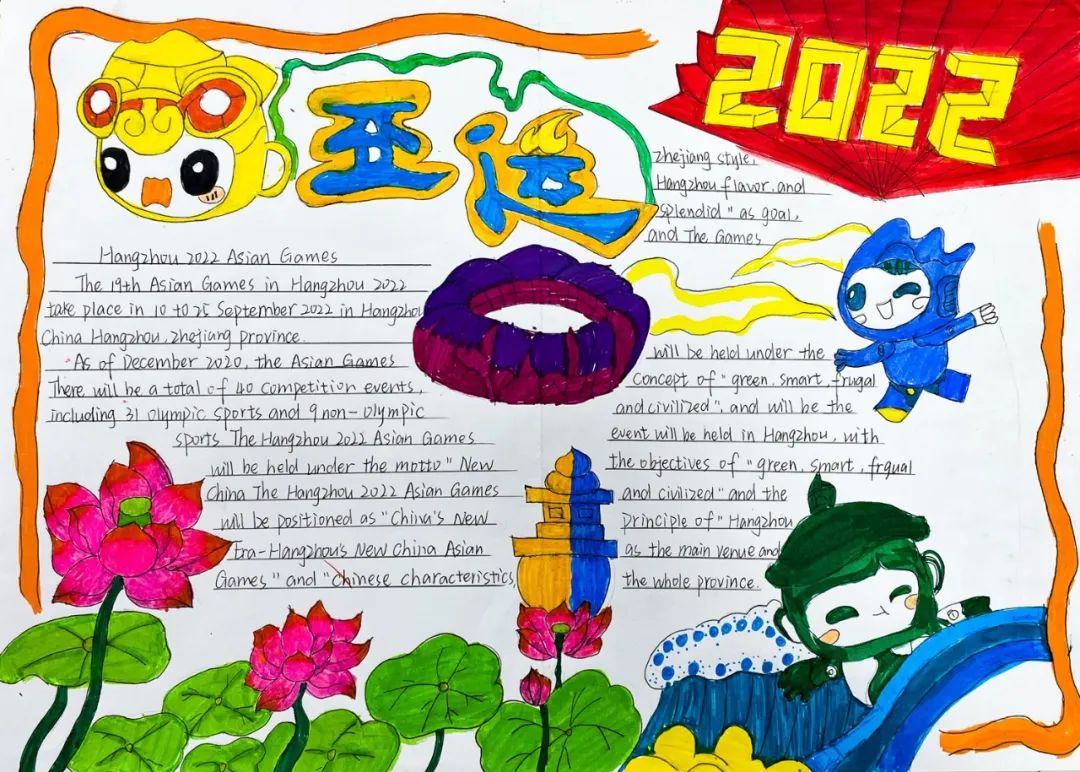 亚运
2022
Hangzhou 2022 Asian Games
The 19th Asian Games in Hangzhou 2022
take place in 10 to 25 September 2022 in Hangzhou
China Hangzhou, zhejiang province.
As of December 2020, the Asian Games
There will be a total of 40 competition events,
including 31 olympic sports and 9 non-olympic
sports The Hangzhou 2022 Asian Games
will be held under the motto "New
China The Hangzhou 2022 Asian Games
will be positioned as "China's New
Era-Hangzhou's New China Asian
Games" and "Chinese characteristics,
zhejiang style,
Hangzhou flavor, and
splendid" as goal,
and The Games
will be held under the
concept of "green, smart, frugal
and civilized", and will be the
event will be held in Hangzhou, with
the objectives of "green, smart, frqual
and civilized" and the
principle of "Hangzhou
as the main venue and
the whole province.